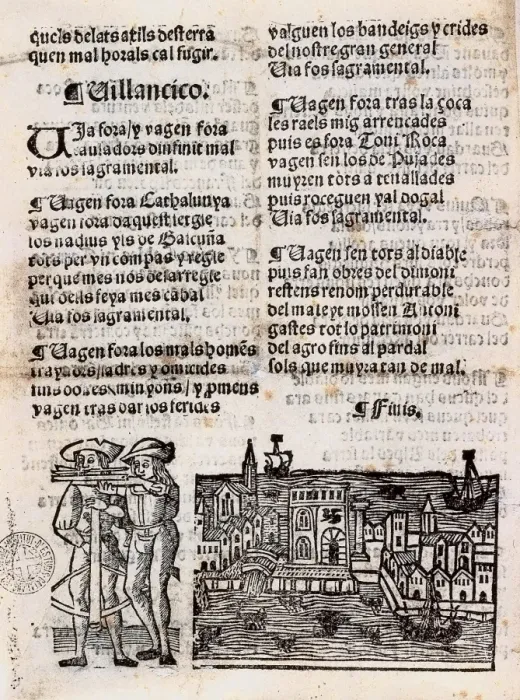 quels delats atils desterra
quen mal horals cal fugir.
¶Uillancico.
UJa fora/y vagen fora
bauladors dinfinit mal
via fos sagramental.
¶Uagen fora Cathalunya
vagen fora daquest
los nadius yls de Gascuna
tots per vn compas y regle
perque mes nos desarregle
qui dells feya mes cabal
Uia fos sagramental.
¶Uagen fora los mals homẽs
traydors/ladres y omicides
y
vagen tras dar los ferides
valguen los bandeigs y crides
del nostre gran general
Uia fos sagramental.
¶Uagen fora tras la çoca
les raels mig arrencades
puis es fora Toni Roca
vagen sen los de Pujades
muyren tots a tenallades
puis roceguen yal dogal
Uia fos sagramental.
¶Uagen sen tots al diable
puis fan obres del dimoni
restens renom perdurable
del mateyt mossen Antoni
gastes tot lo patrimoni
del agro fins al pardal
sols que muyra tan de mal.
¶Finis.